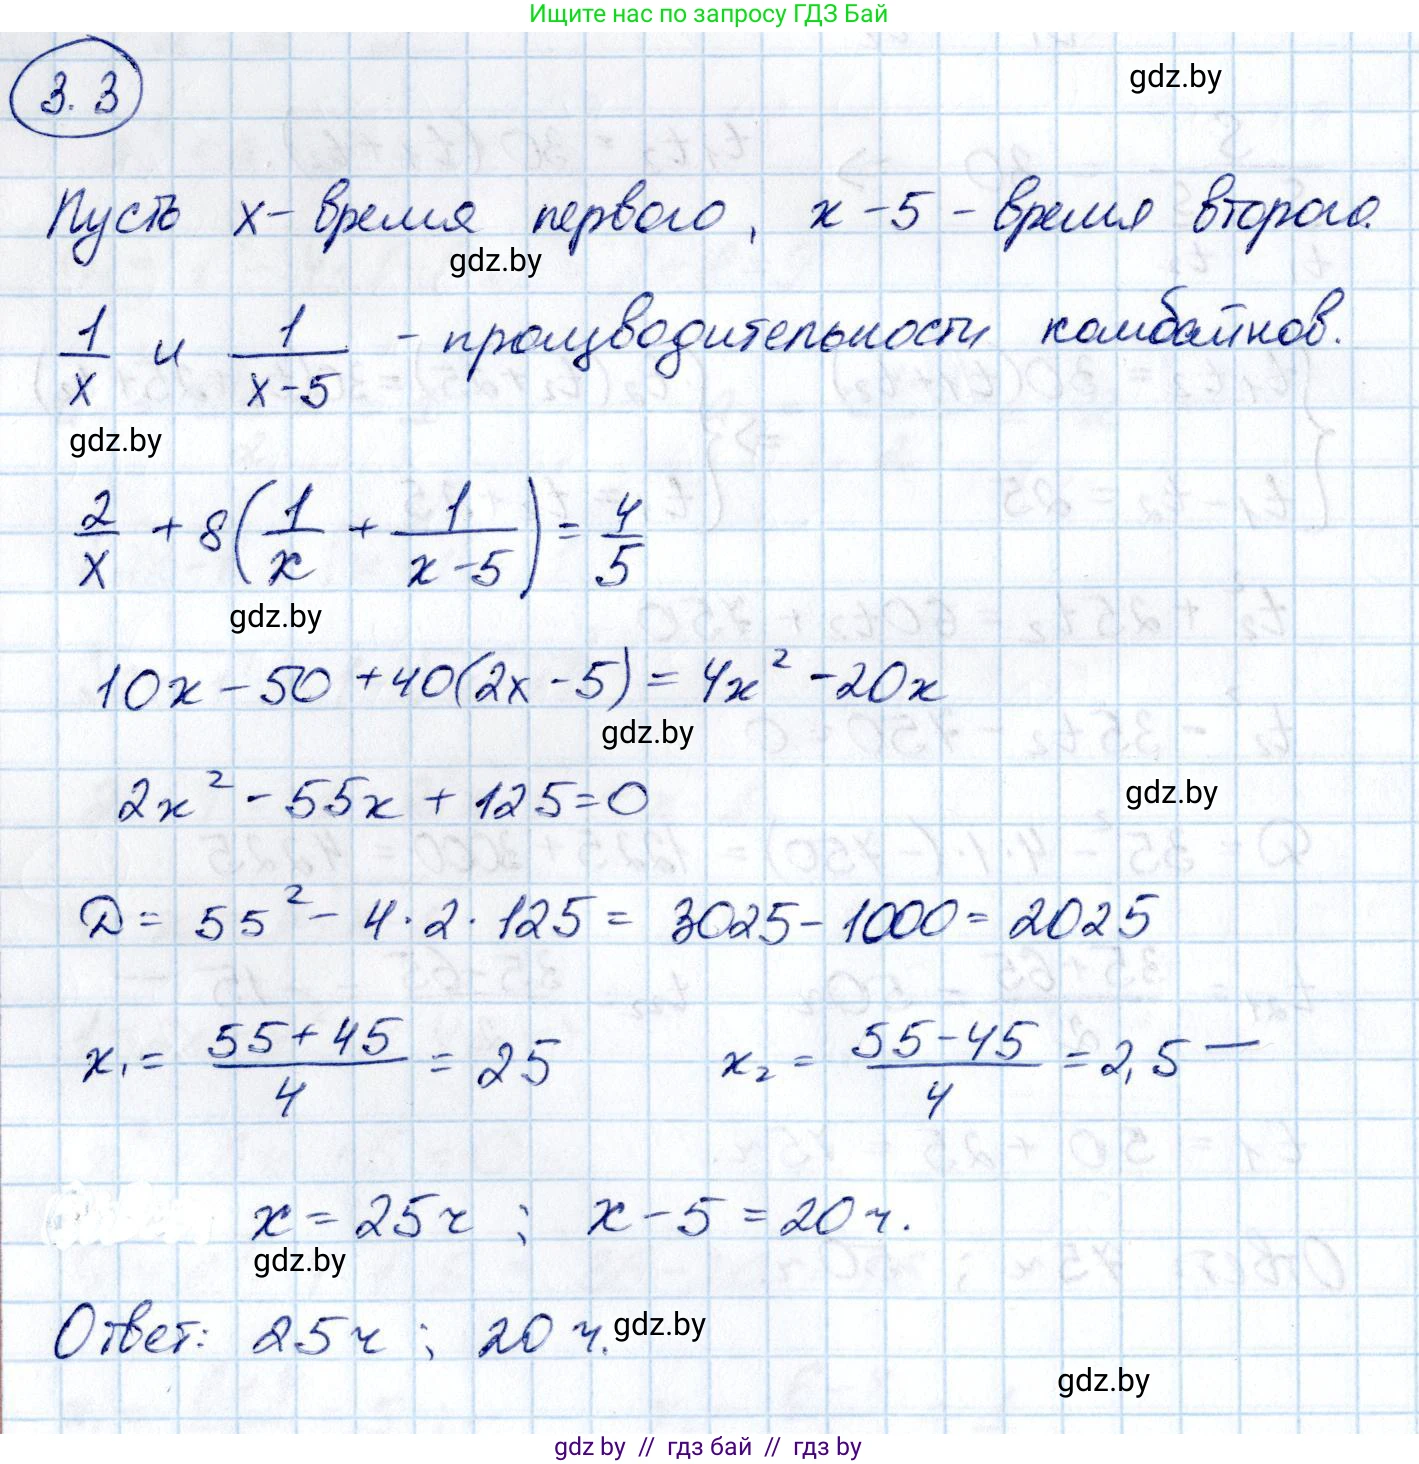 Ищите нас по запросу ГДЗ Бай
3.3
gdz.by
Пусть x - время первого, x - 5 - время второго.
gdz.by
1/x и 1/(x-5) - производительности комбайнов.
gdz.by
2/x + 8(1/x + 1/(x-5)) = 4/5
gdz.by
10x - 50 + 40(2x - 5) = 4x² - 20x
gdz.by
2x² - 55x + 125 = 0
gdz.by
D = 55² - 4·2·125 = 3025 - 1000 = 2025
x₁ = (55+45)/4 = 25 x₂ = (55-45)/4 = 2,5 —
x = 25 ч ; x - 5 = 20 ч.
gdz.by
Ответ: 25 ч ; 20 ч.
gdz.by
gdz.by
gdz by // гдз бай // гдз by